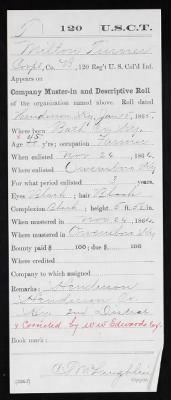 T | 120 | U.S.C.T.
Milton Turner
Corpl, Co. B, 120 Reg't U. S. Col'd Inf.
Appears on
Company Muster-in and Descriptive Roll
of the organization named above. Roll dated
Henderson Ky, 1865.
Where born Bath Co. Ky.
Age 45 y'rs; occupation Farmer
When enlisted Nov 24, 1864.
Where enlisted Owensboro Ky
For what period enlisted years.
Eyes Black; hair Black
Complexion Black; height 5 ft. in.
When mustered in Nov 24, 1864.
Where mustered in Owensboro Ky
Bounty paid $ 100; due $ 100
Where credited
Company to which assigned
Remarks: Henderson
Henderson Co.
Ky. 2nd District
Book mark:
McLaughlin